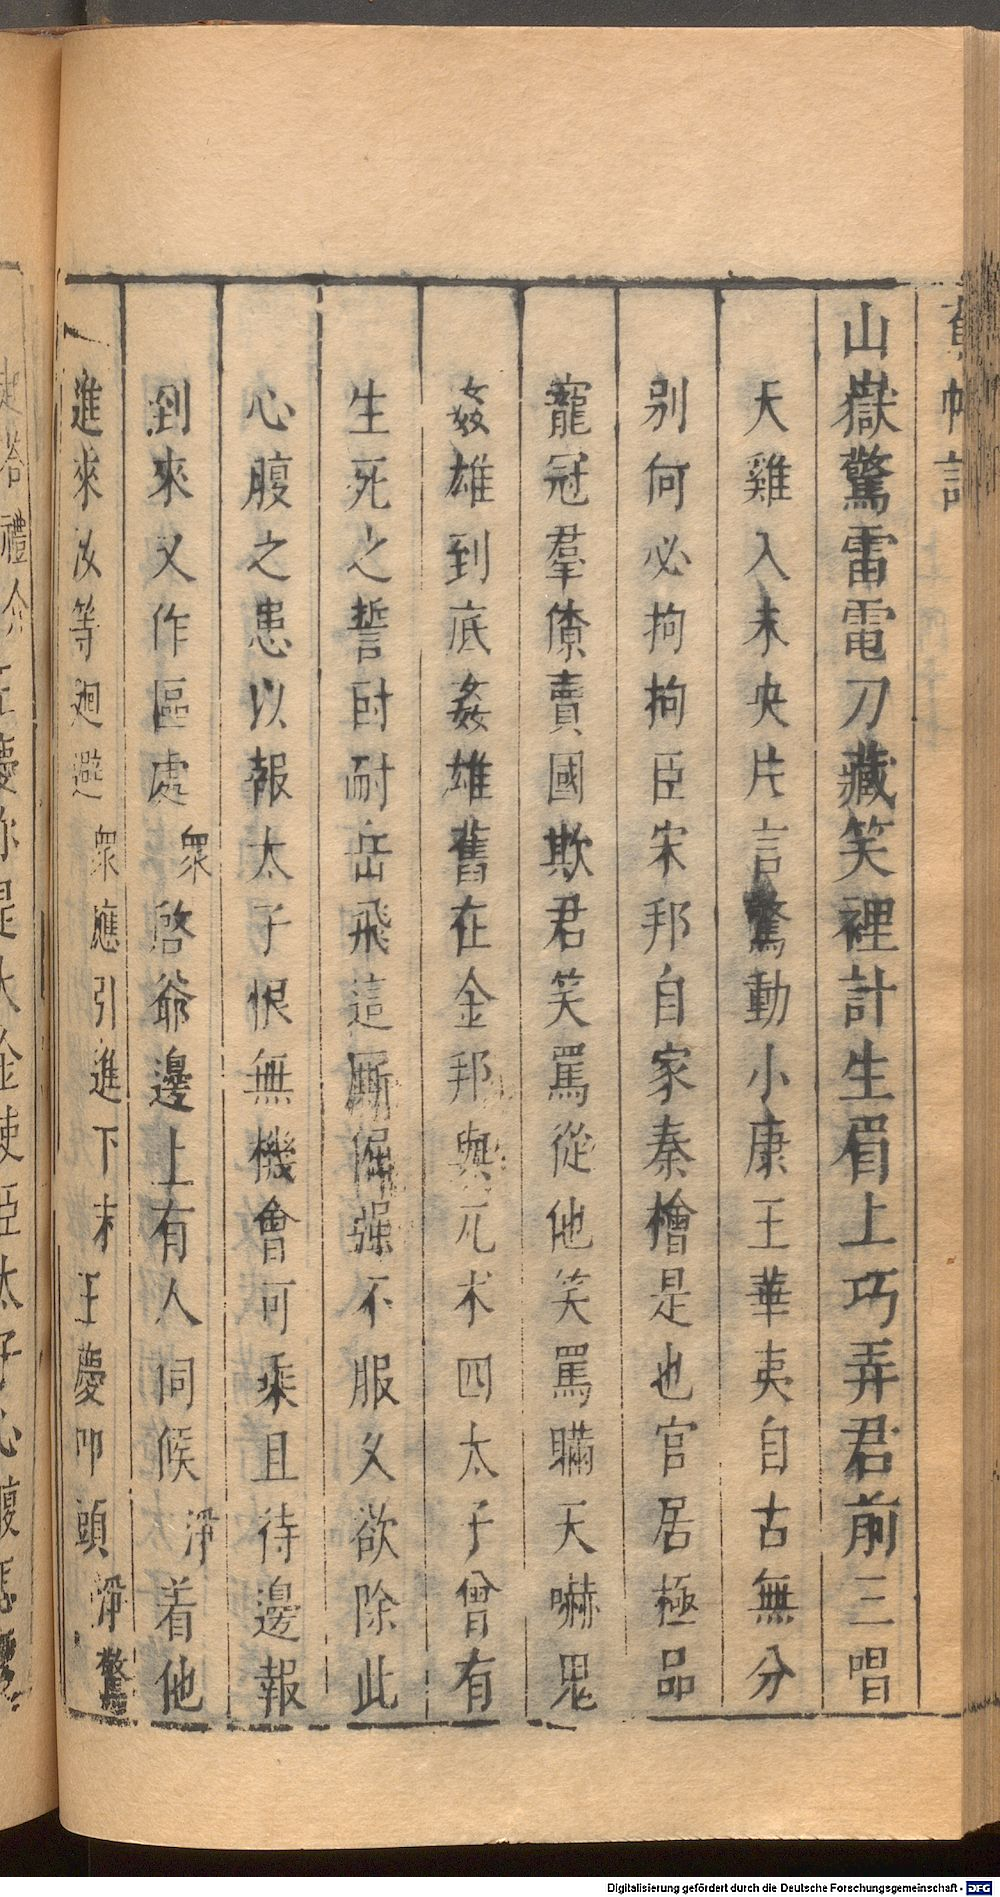 蕉帕記
山嶽驚雷電刀藏笑裡計生眉上巧弄君前三唱
天雞入未央片言驚動小康王華夷自古無分
别何必拘拘臣宋邦自家秦檜是也官居極品
寵冠羣僚賣國欺君笑罵從他笑罵瞞天天嚇鬼
姦雄到底姦雄舊在金邦與兀朮四太子曾有
生死之誓叵耐岳飛這厮倔强不服乂欲除此
心腹之患以報太子恨無機會可乘且待邊報
到來又作區處衆啓爺邊上有人伺候淨着他
進來汝等廻避衆應引進下末王慶叩頭淨驚
Digitalisierung gefördert durch die Deutsche Forschungsgemeinschaft - DFG